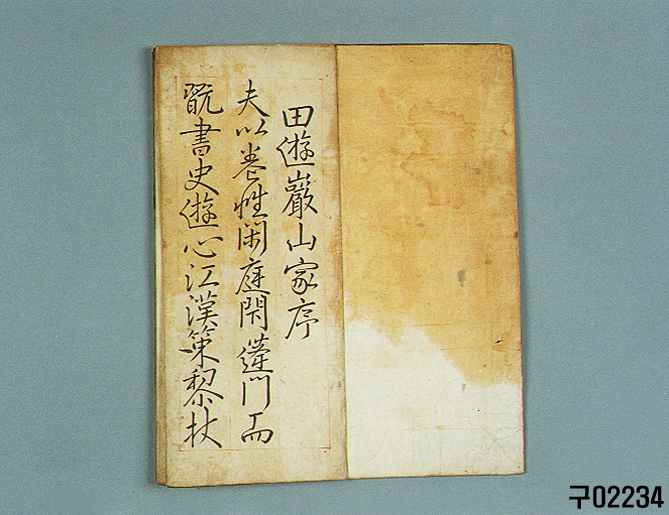 田遊巖山家序
夫以養性閑庭閇蓬門而
翫書史遊心江漢策黎杖
구02234